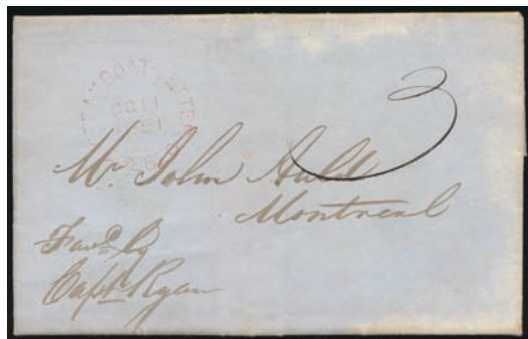 STEAMBOAT LETTER
OC 11
3
Mr. John Auld
Montreal
Favd. by
Captn. Ryan